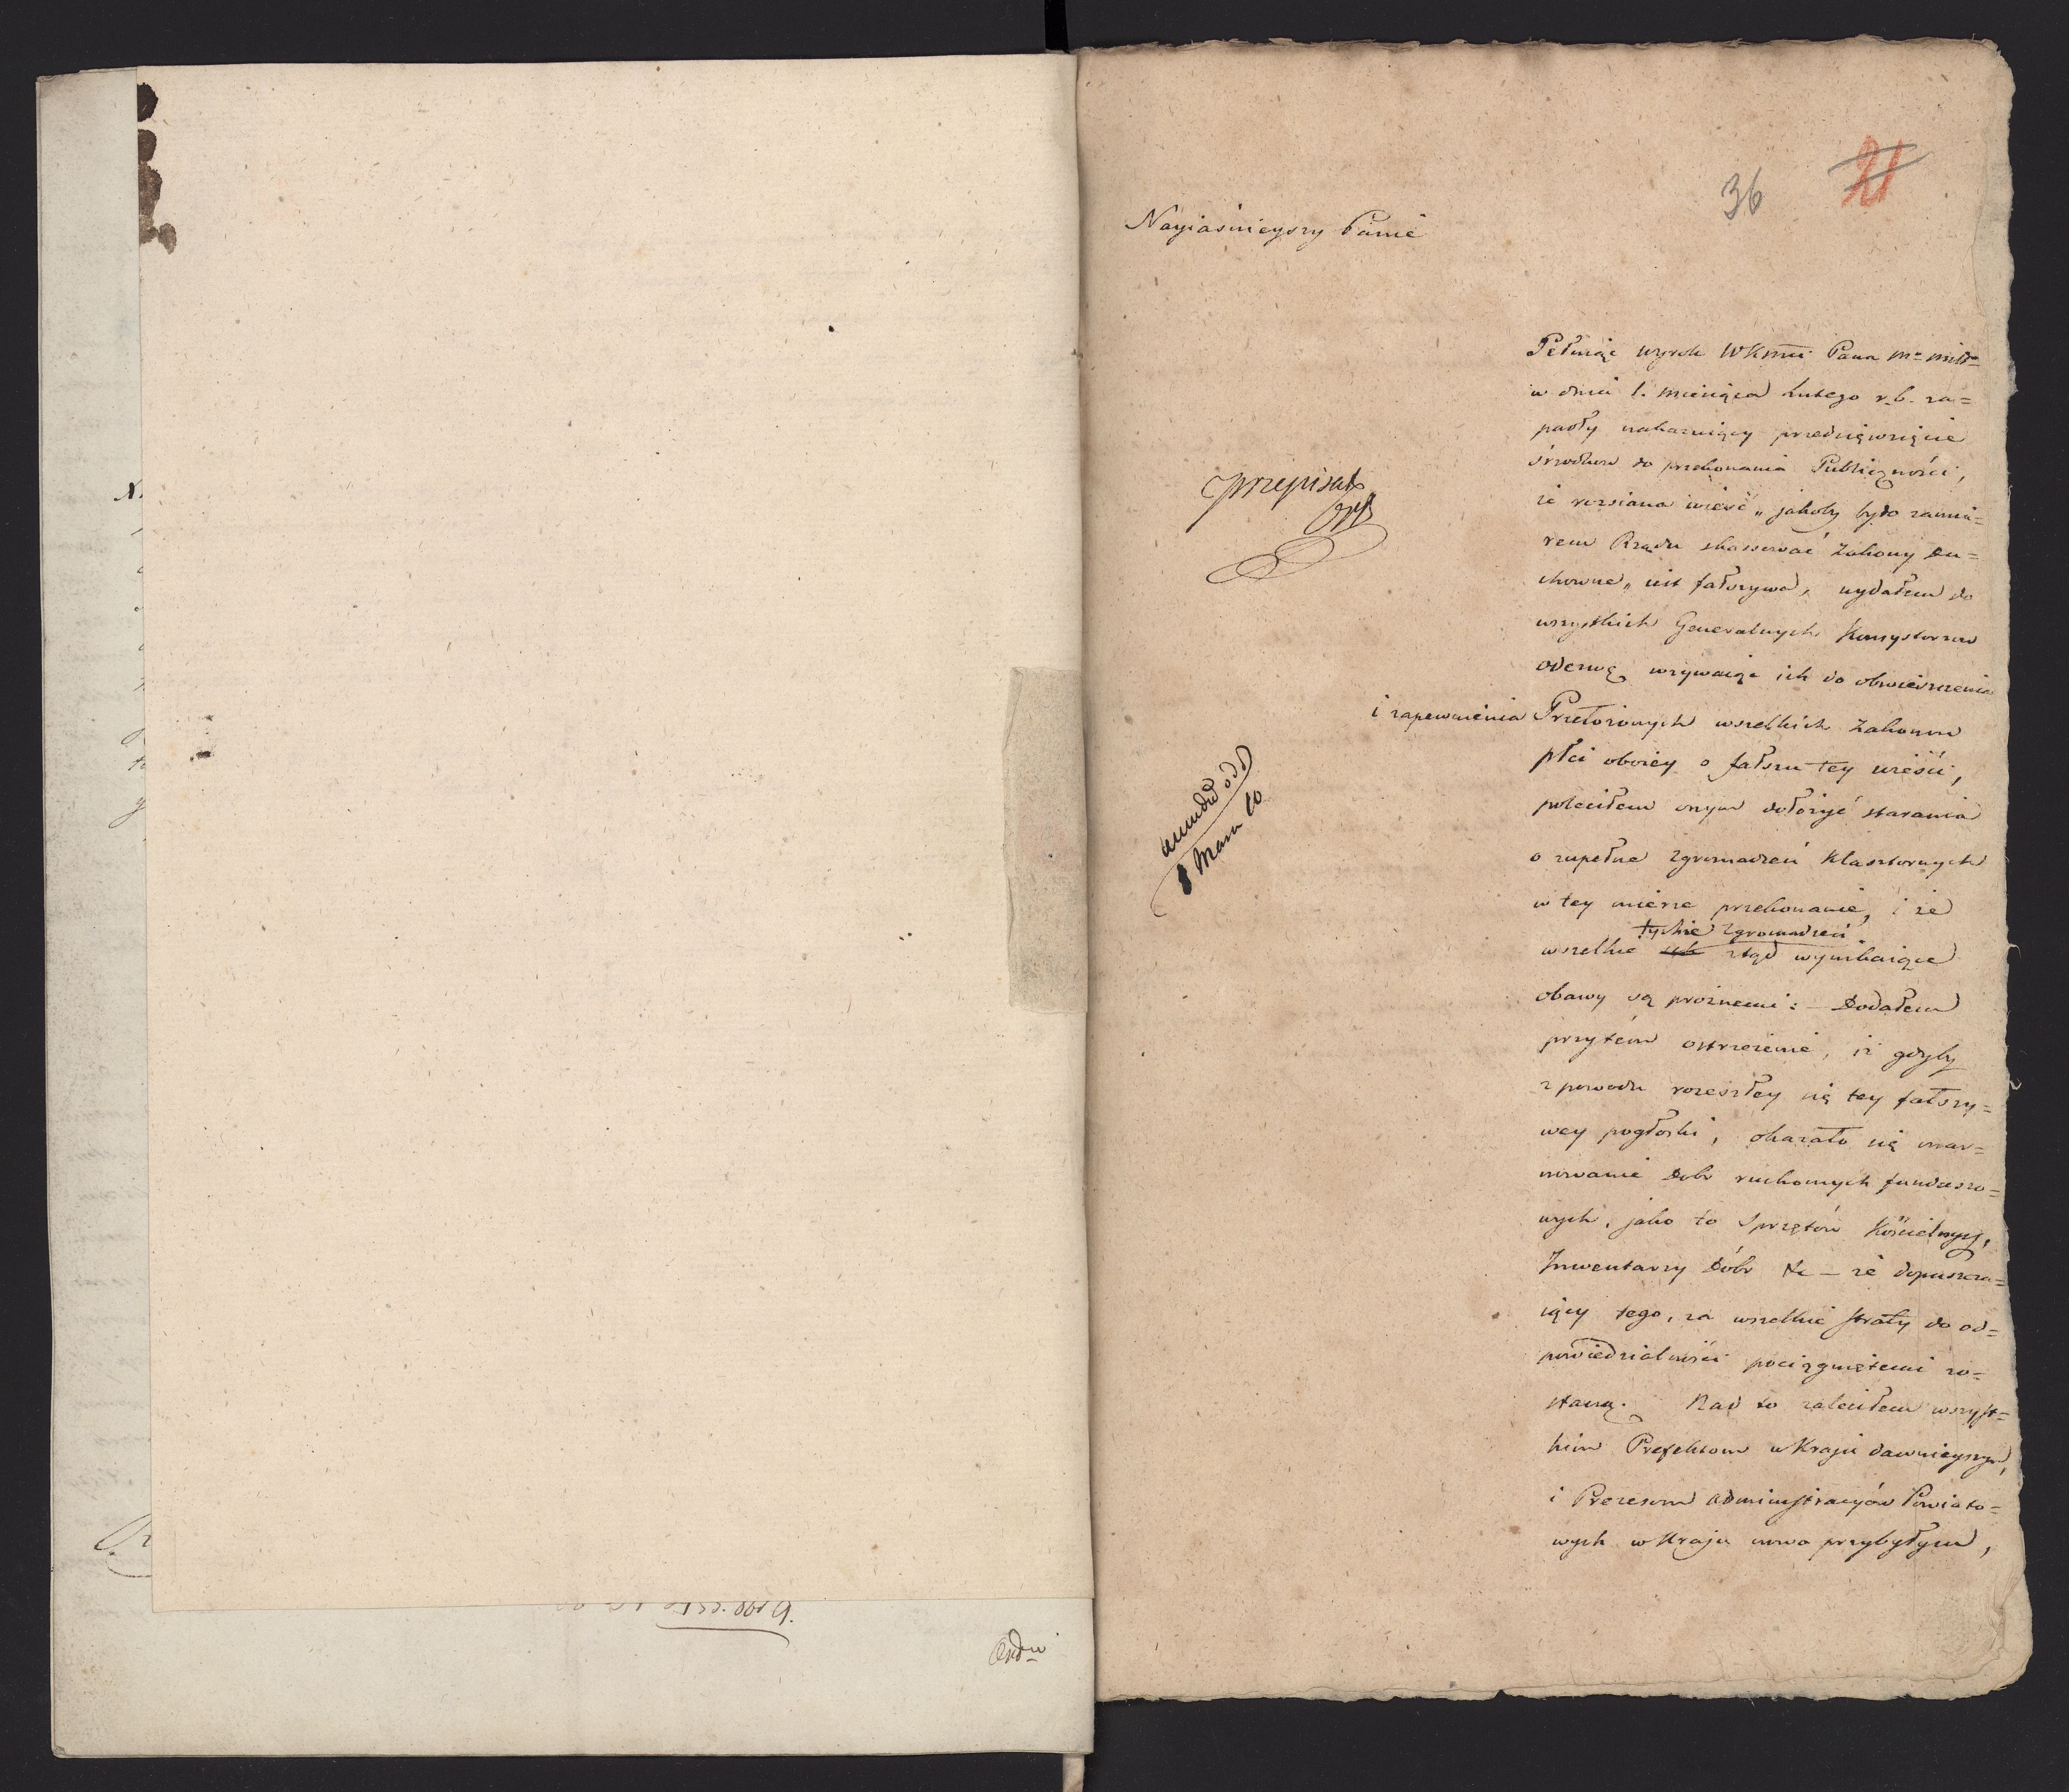 36 21
Nayiaśnieyszy Panie
Pełniąc wyrok WKmci Pana mo miło
w dniu 1. miesiąca Lutego r. b. za=
padły nakazuiący przedsięwzięcie
śrzodkow do przekonania Publiczności,
że rozsiana wieść „jakoby było zamia=
rem Rządu skassować Zakony Du=
chowne„ iest fałszywa, wydałem do
wszystkich Generalnych Konsystorzow
odezwę wzywaiąc ich do obwieszczenia
i zapewnienia Przełożonych wszelkich Zakonow
płci oboiey o fałszu tey wieści,
poleciłem onym dołożyć starania
o zupełne zgromadzeń Klasztornych
w tey mierze przekonanie, i że
tychże zgromadzeń
wszelkie ztąd wynikaiące
obawy są prożnemi: – Dodałem
przytém ostrzeżenie, iż gdyby
z powodu rozeszłey się tey fałszy=
wey pogłoski, okazało się mar=
nowanie Dobr ruchomych fundaszo=
wych, jako to Sprzętów Kościelnych,
Inwentarzy Dóbr &c – że dopuszcza=
iący tego, za wszelkie straty do od=
powiedzialności pociągniętemi zo=
staną. Nad to zaleciłem wszyst=
kim Prefektom w Kraju dawnieyszym,
i Prezesom administracyów Powiato=
wych w Kraju nowo przybyłym,
przepisał
mundo odd
8 Mar 10
Ord